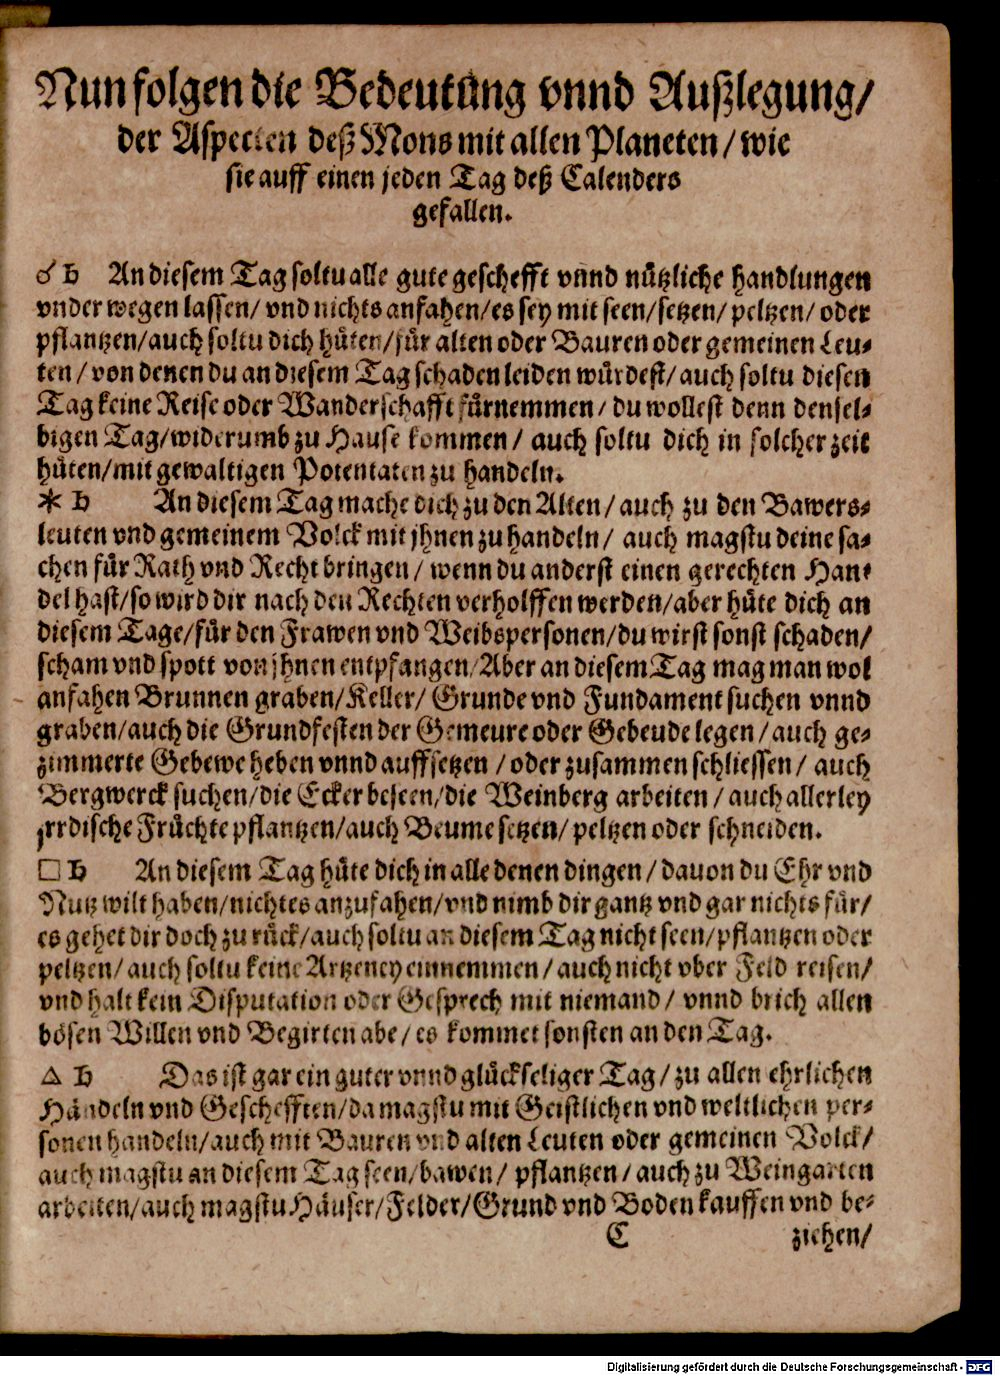 Nun folgen die Bedeutůng vnnd Außlegung/
der Aspecten deß Mons mit allen Planeten/ wie
sie auff einen jeden Tag deß Calenders
gefallen.
☌ ♄ An diesem Tag soltu alle gute geschefft vnnd nützliche handlungen
vnder wegen lassen/ vnd nichts anfahen/ es sey mit seen/ setzen/ peltzen/ oder
pflantzen/ auch soltu dich hüten/ für alten oder Bauren oder gemeinen Leu⸗
ten/ von denen du an diesem Tag schaden leiden würdest/ auch soltu diesen
Tag keine Reise oder Wanderschafft fürnemmen/ du wollest denn densel⸗
bigen Tag/ widerumb zu Hause kommen/ auch soltu dich in solcher zeit
hüten/ mit gewaltigen Potentaten zu handeln.
⚹ ♄ An diesem Tag mache dich zu den Alten/ auch zu den Bawers⸗
leuten vnd gemeinem Volck mit jhnen zu handeln/ auch magstu deine sa⸗
chen für Rath vnd Recht bringen/ wenn du anderst einen gerechten Han⸗
del hast/ so wird dir nach den Rechten verholffen werden/ aber hüte dich an
diesem Tage/ für den Frawen vnd Weibspersonen/ du wirst sonst schaden/
scham vnd spott von jhnen entpfangen/ Aber an diesem Tag mag man wol
anfahen Brunnen graben/ Keller/ Grunde vnd Fundament suchen vnnd
graben/ auch die Grundfesten der Gemeure oder Gebeude legen/ auch ge⸗
zimmerte Gebewe heben vnnd auffsetzen/ oder zusammen schliessen/ auch
Bergwerck suchen/ die Ecker beseen/ die Weinberg arbeiten/ auch allerley
jrrdische Früchte pflantzen/ auch Beume setzen/ peltzen oder schneiden.
□ ♄ An diesem Tag hüte dich in alle denen dingen/ dauon du Ehr vnd
Nutz wilt haben/ nichtes anzufahen/ vnd nimb dir gantz vnd gar nichts für/
es gehet dir doch zu rück/ auch soltu an diesem Tag nicht seen/ pflantzen oder
peltzen/ auch soltu keine Artzeney einnemmen/ auch nicht vber Feld reisen/
vnd halt kein Disputation oder Gesprech mit niemand/ vnnd brich allen
bösen Willen vnd Begirten abe/ es kommet sonsten an den Tag.
△ ♄ Das ist gar ein guter vnnd glückseliger Tag/ zu allen ehrlichen
Händeln vnd Geschefften/ da magstu mit Geistlichen vnd weltlichen per⸗
sonen handeln/ auch mit Bauren vnd alten Leuten oder gemeinen Volck/
auch magstu an diesem Tag seen/ bawen/ pflantzen/ auch zu Weingarten
arbeiten/ auch magstu Häuser/ Felder/ Grund vnd Boden kauffen vnd be⸗
C ziehen/
Digitalisierung gefördert durch die Deutsche Forschungsgemeinschaft - DFG